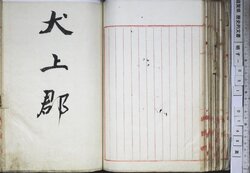 犬上郡